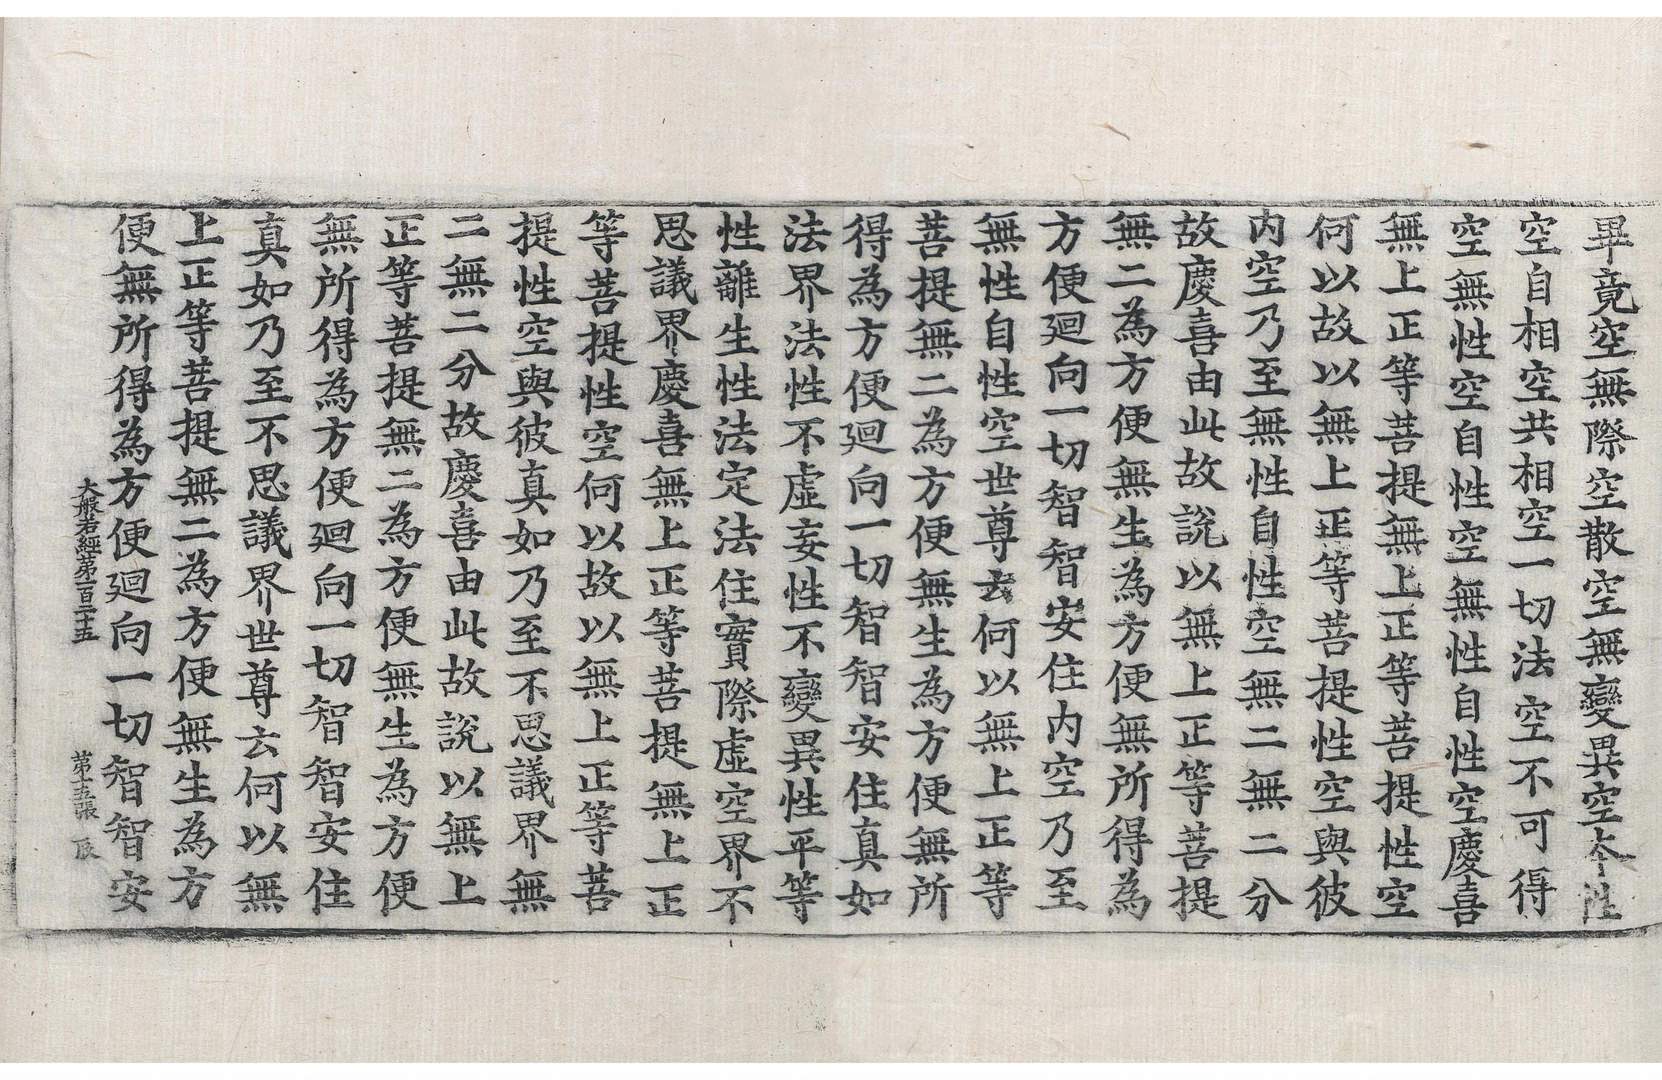 畢竟空無際空散空無變異空本性
空自相空共相空一切法空不可得
空無性空自性空無性自性空慶喜
無上正等菩提無上正等菩提性空
何以故以無上正等菩提性空與彼
内空乃至無性自性空無二無二分
故慶喜由此故說以無上正等菩提
無二為方便無生為方便無所得為
方便廻向一切智智安住内空乃至
無性自性空世尊云何以無上正等
菩提無二為方便無生為方便無所
得為方便廻向一切智智安住真如
法界法性不虛妄性不變異性平等
性離生性法定法住實際虛空界不
思議界慶喜無上正等菩提無上正
等菩提性空何以故以無上正等菩
提性空與彼真如乃至不思議界無
二無二分故慶喜由此故說以無上
正等菩提無二為方便無生為方便
無所得為方便廻向一切智智安住
真如乃至不思議界世尊云何以無
上正等菩提無二為方便無生為方
便無所得為方便廻向一切智智安
大般若經第一百二十五 第十五張 辰